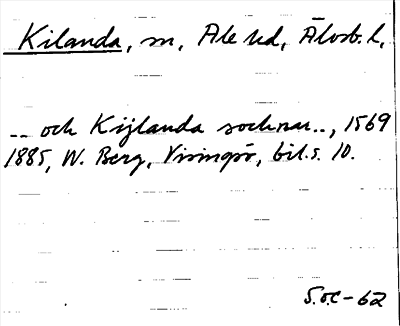 Kilanda, sn, Ale hd, Älvsb. l,
.. och Kijlanda socknar.., 1569
1885, W. Berg, Visingsö, bil. s. 10.
S.ö.C-62